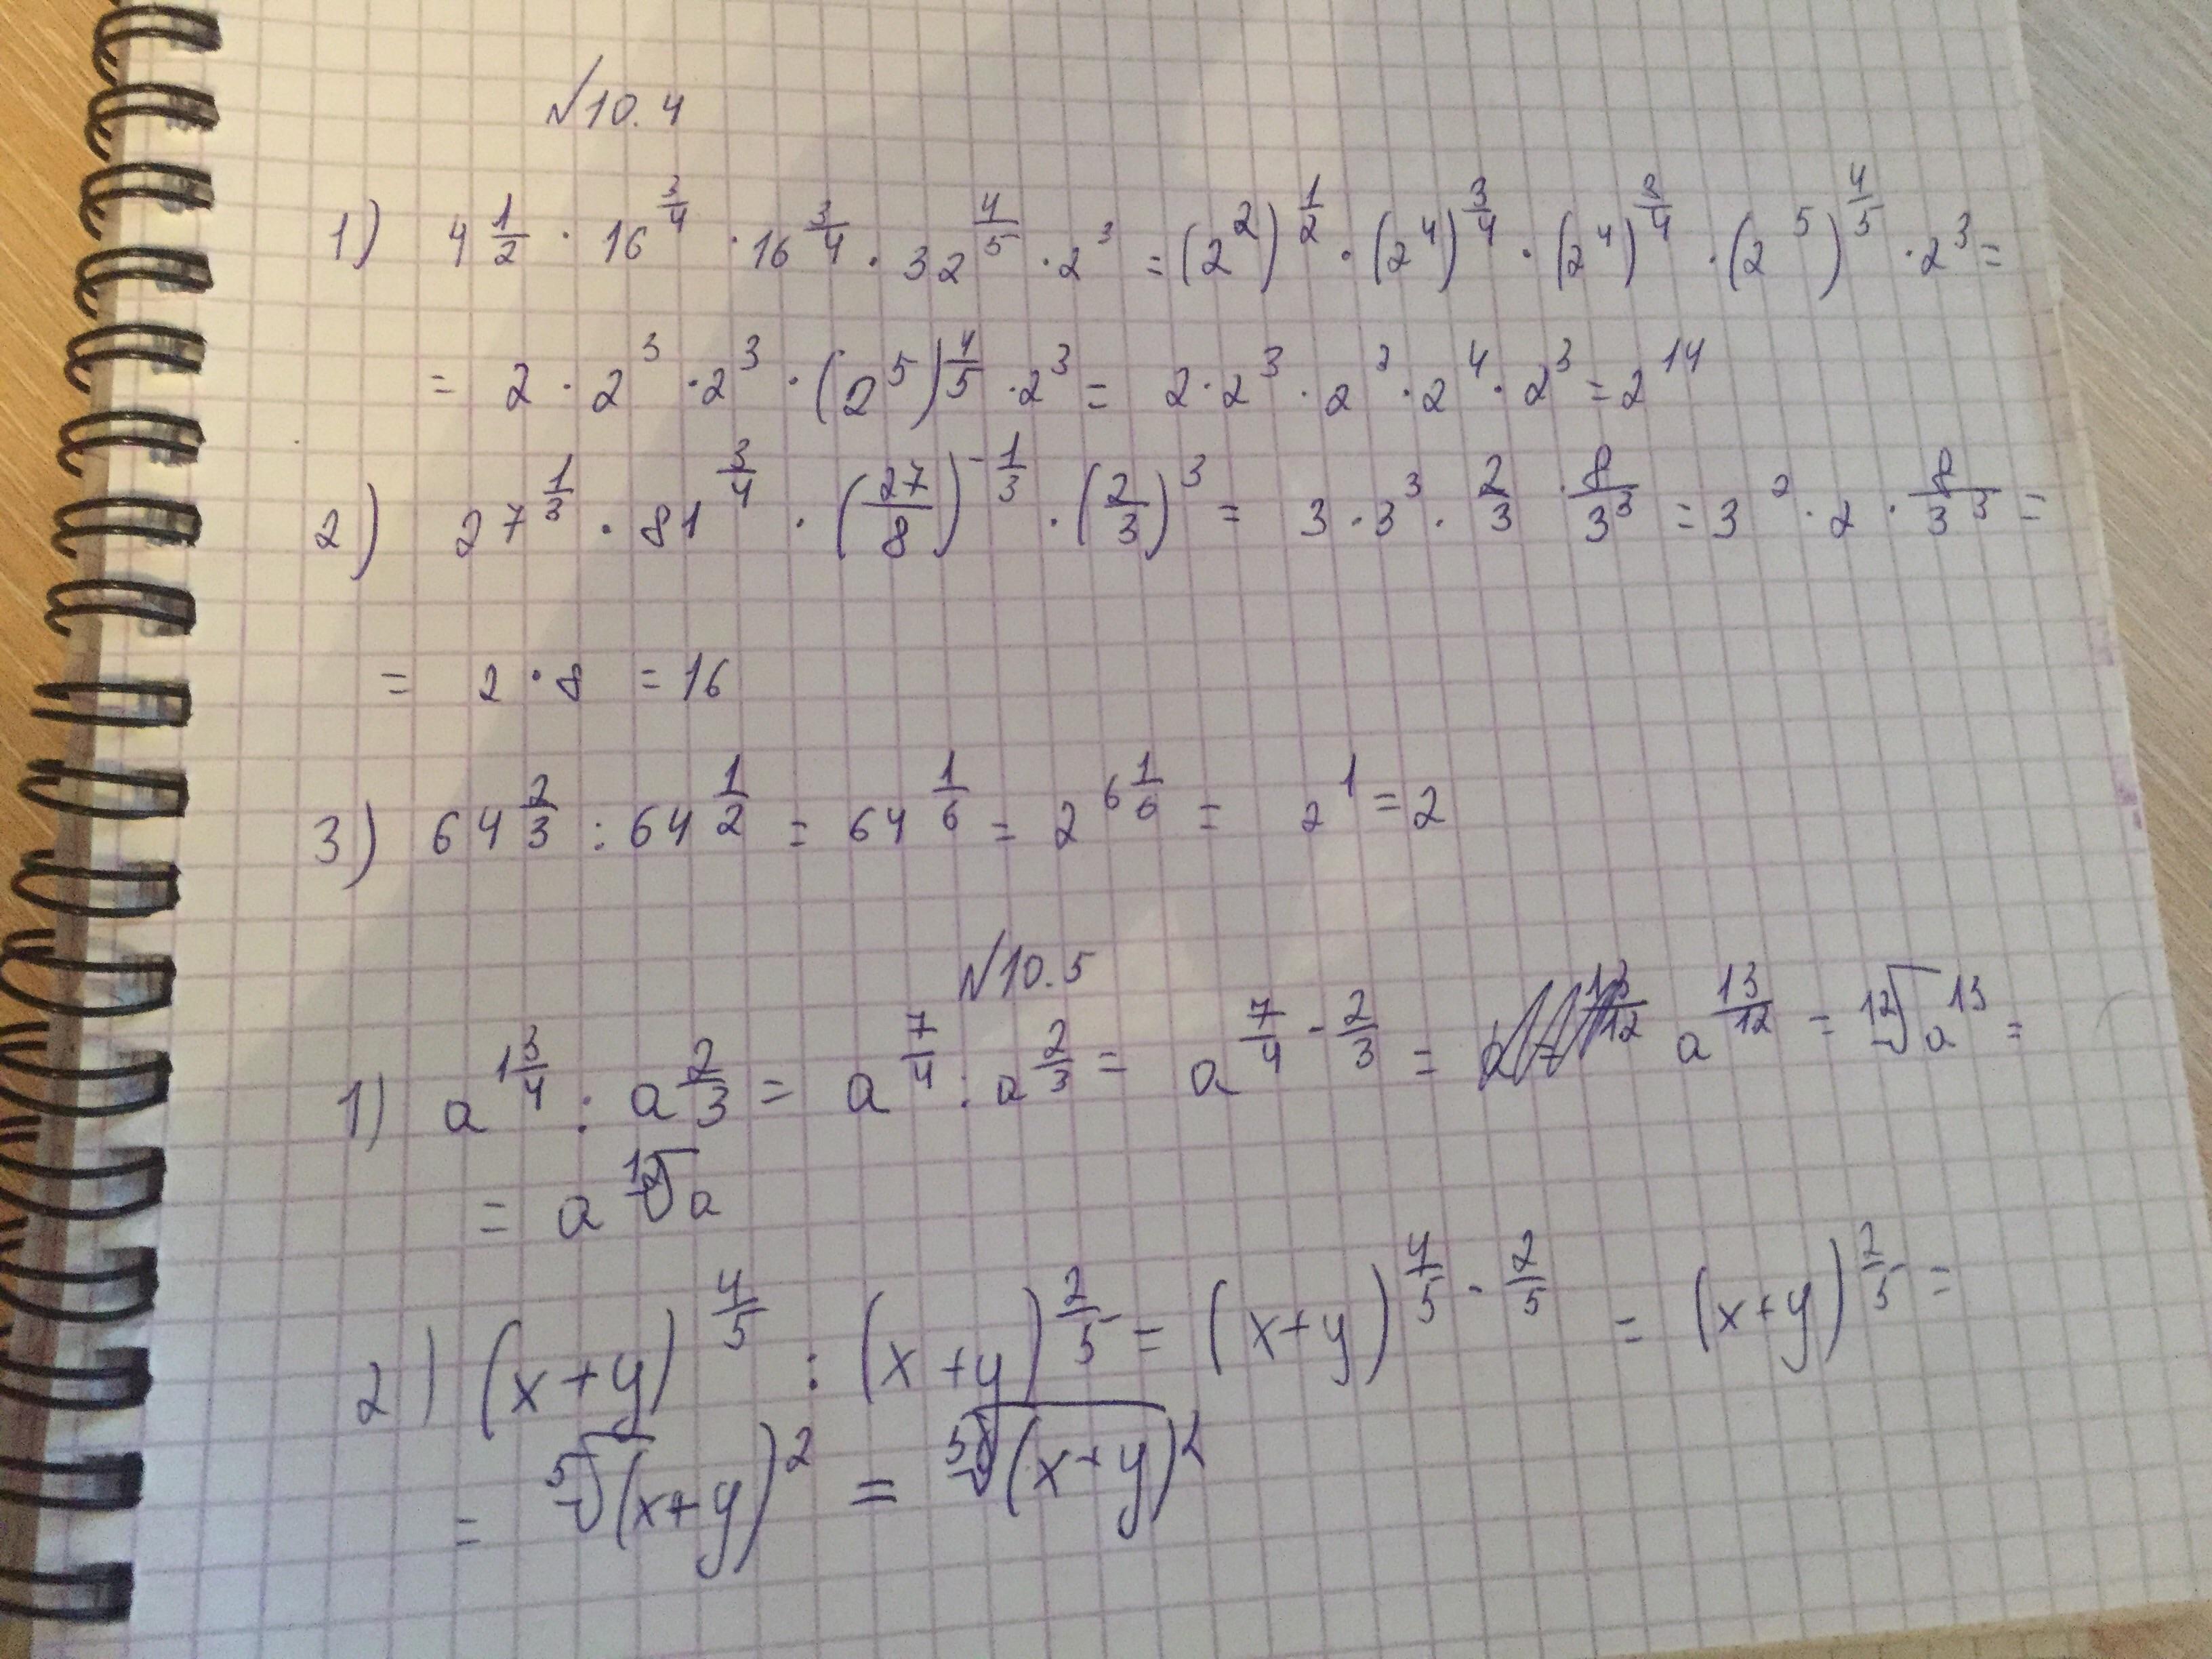 №10.4
1) 4^{1/2} · 16^{3/4} · 16^{3/4} · 32^{4/5} · 2^3 = (2^2)^{1/2} · (2^4)^{3/4} · (2^4)^{3/4} · (2^5)^{4/5} · 2^3 =
= 2 · 2^3 · 2^3 · (2^5)^{4/5} · 2^3 = 2 · 2^3 · 2^3 · 2^4 · 2^3 = 2^{14}
2) 27^{1/3} · 81^{3/4} · (27/8)^{-1/3} · (2/3)^3 = 3 · 3^3 · 2/3 · 8/3^3 = 3^2 · 2 · 8/3^3 =
= 2 · 8 = 16
3) 64^{2/3} : 64^{1/2} = 64^{1/6} = 2^{6 1/6} = 2^1 = 2
№10.5
1) a^{1 3/4} : a^{2/3} = a^{7/4} : a^{2/3} = a^{7/4 - 2/3} = a^{13/12} = \sqrt[12]{a^{13}} =
= a \sqrt[12]{a}
2) (x+y)^{4/5} : (x+y)^{2/5} = (x+y)^{4/5 - 2/5} = (x+y)^{2/5} =
= \sqrt[5]{(x+y)^2} = \sqrt[5]{(x+y)^2}